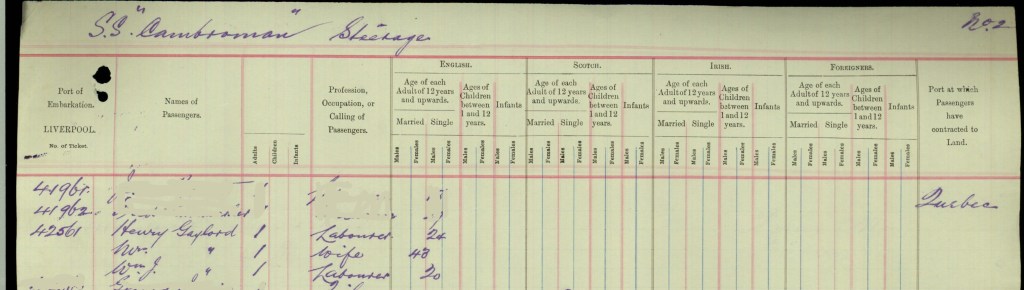 S.S. "Cambroman" Steerage No. 2
ENGLISH. SCOTCH. IRISH. FOREIGNERS.
Port of Embarkation. LIVERPOOL. No. of Ticket.
Names of Passengers.
Adults Children Infants
Profession, Occupation, or Calling of Passengers.
Age of each Adult of 12 years and upwards. Ages of Children between 1 and 12 years. Infants
Age of each Adult of 12 years and upwards. Ages of Children between 1 and 12 years. Infants
Age of each Adult of 12 years and upwards. Ages of Children between 1 and 12 years. Infants
Age of each Adult of 12 years and upwards. Ages of Children between 1 and 12 years. Infants
Port at which Passengers have contracted to Land.
Married Single Married Single Married Single Married Single
Males Females Males Females Males Females Males Females
Males Females Males Females Males Females Males Females
Males Females Males Females Males Females Males Females
Males Females Males Females Males Females Males Females
41961 " " "
41962 Quebec
42561 Henry Gaylord 1 Labourer 24
Mrs. " 1 Wife 43
Wm J. " 1 Labourer 20